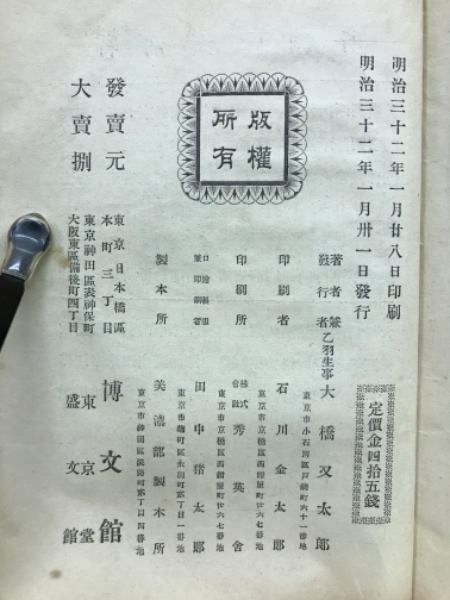 明治三十二年一月廿八日印刷
明治三十二年一月卅一日發行
定價金四拾五錢
版權所有
著者兼發行者 乙羽生事 大橋又太郎
東京市小石川區戸崎町六十一番地
印刷者 石川金太郎
東京市京橋區西紺屋町廿六七番地
印刷所 株式會社 秀英舍
東京市京橋區西紺屋町廿六七番地
田中猪太郎
東京市麴町區永田町貳丁目一番地
製本所 美濃部製本所
東京市神田區淡路町貳丁目四番地
發賣元 東京日本橋區本町三丁目 博文館
大賣捌 東京神田區表神保町 東京堂
大阪東區備後町四丁目 盛文館